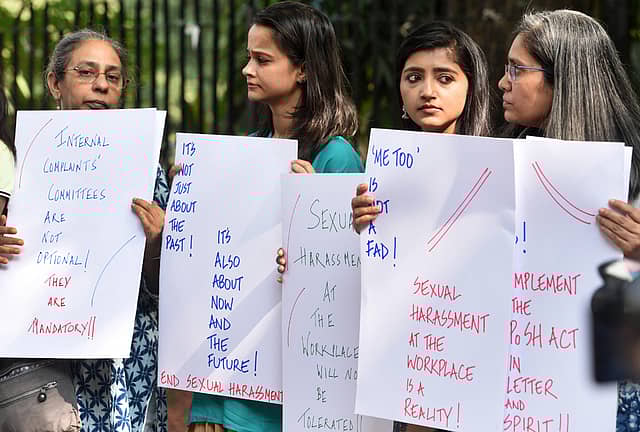 INTERNAL
COMPLAINTS'
COMMITTEES
ARE
NOT
OPTIONAL!
THEY
ARE
MANDATORY!!
IT'S
NOT
JUST
ABOUT
THE
PAST!
IT'S
ALSO
ABOUT
NOW
AND
THE
FUTURE!
END SEXUAL HARASSMENT
SEXUAL
HARASSMENT
AT
THE
WORKPLACE
WILL NO
BE
TOLERATED!
'ME TOO'
IS
NOT
A
FAD!
SEXUAL
HARASSMENT
AT THE
WORKPLACE
IS A
REALITY!
!
MPLEMENT
THE
PoSH ACT
IN
LETTER
AND
SPIRIT!!